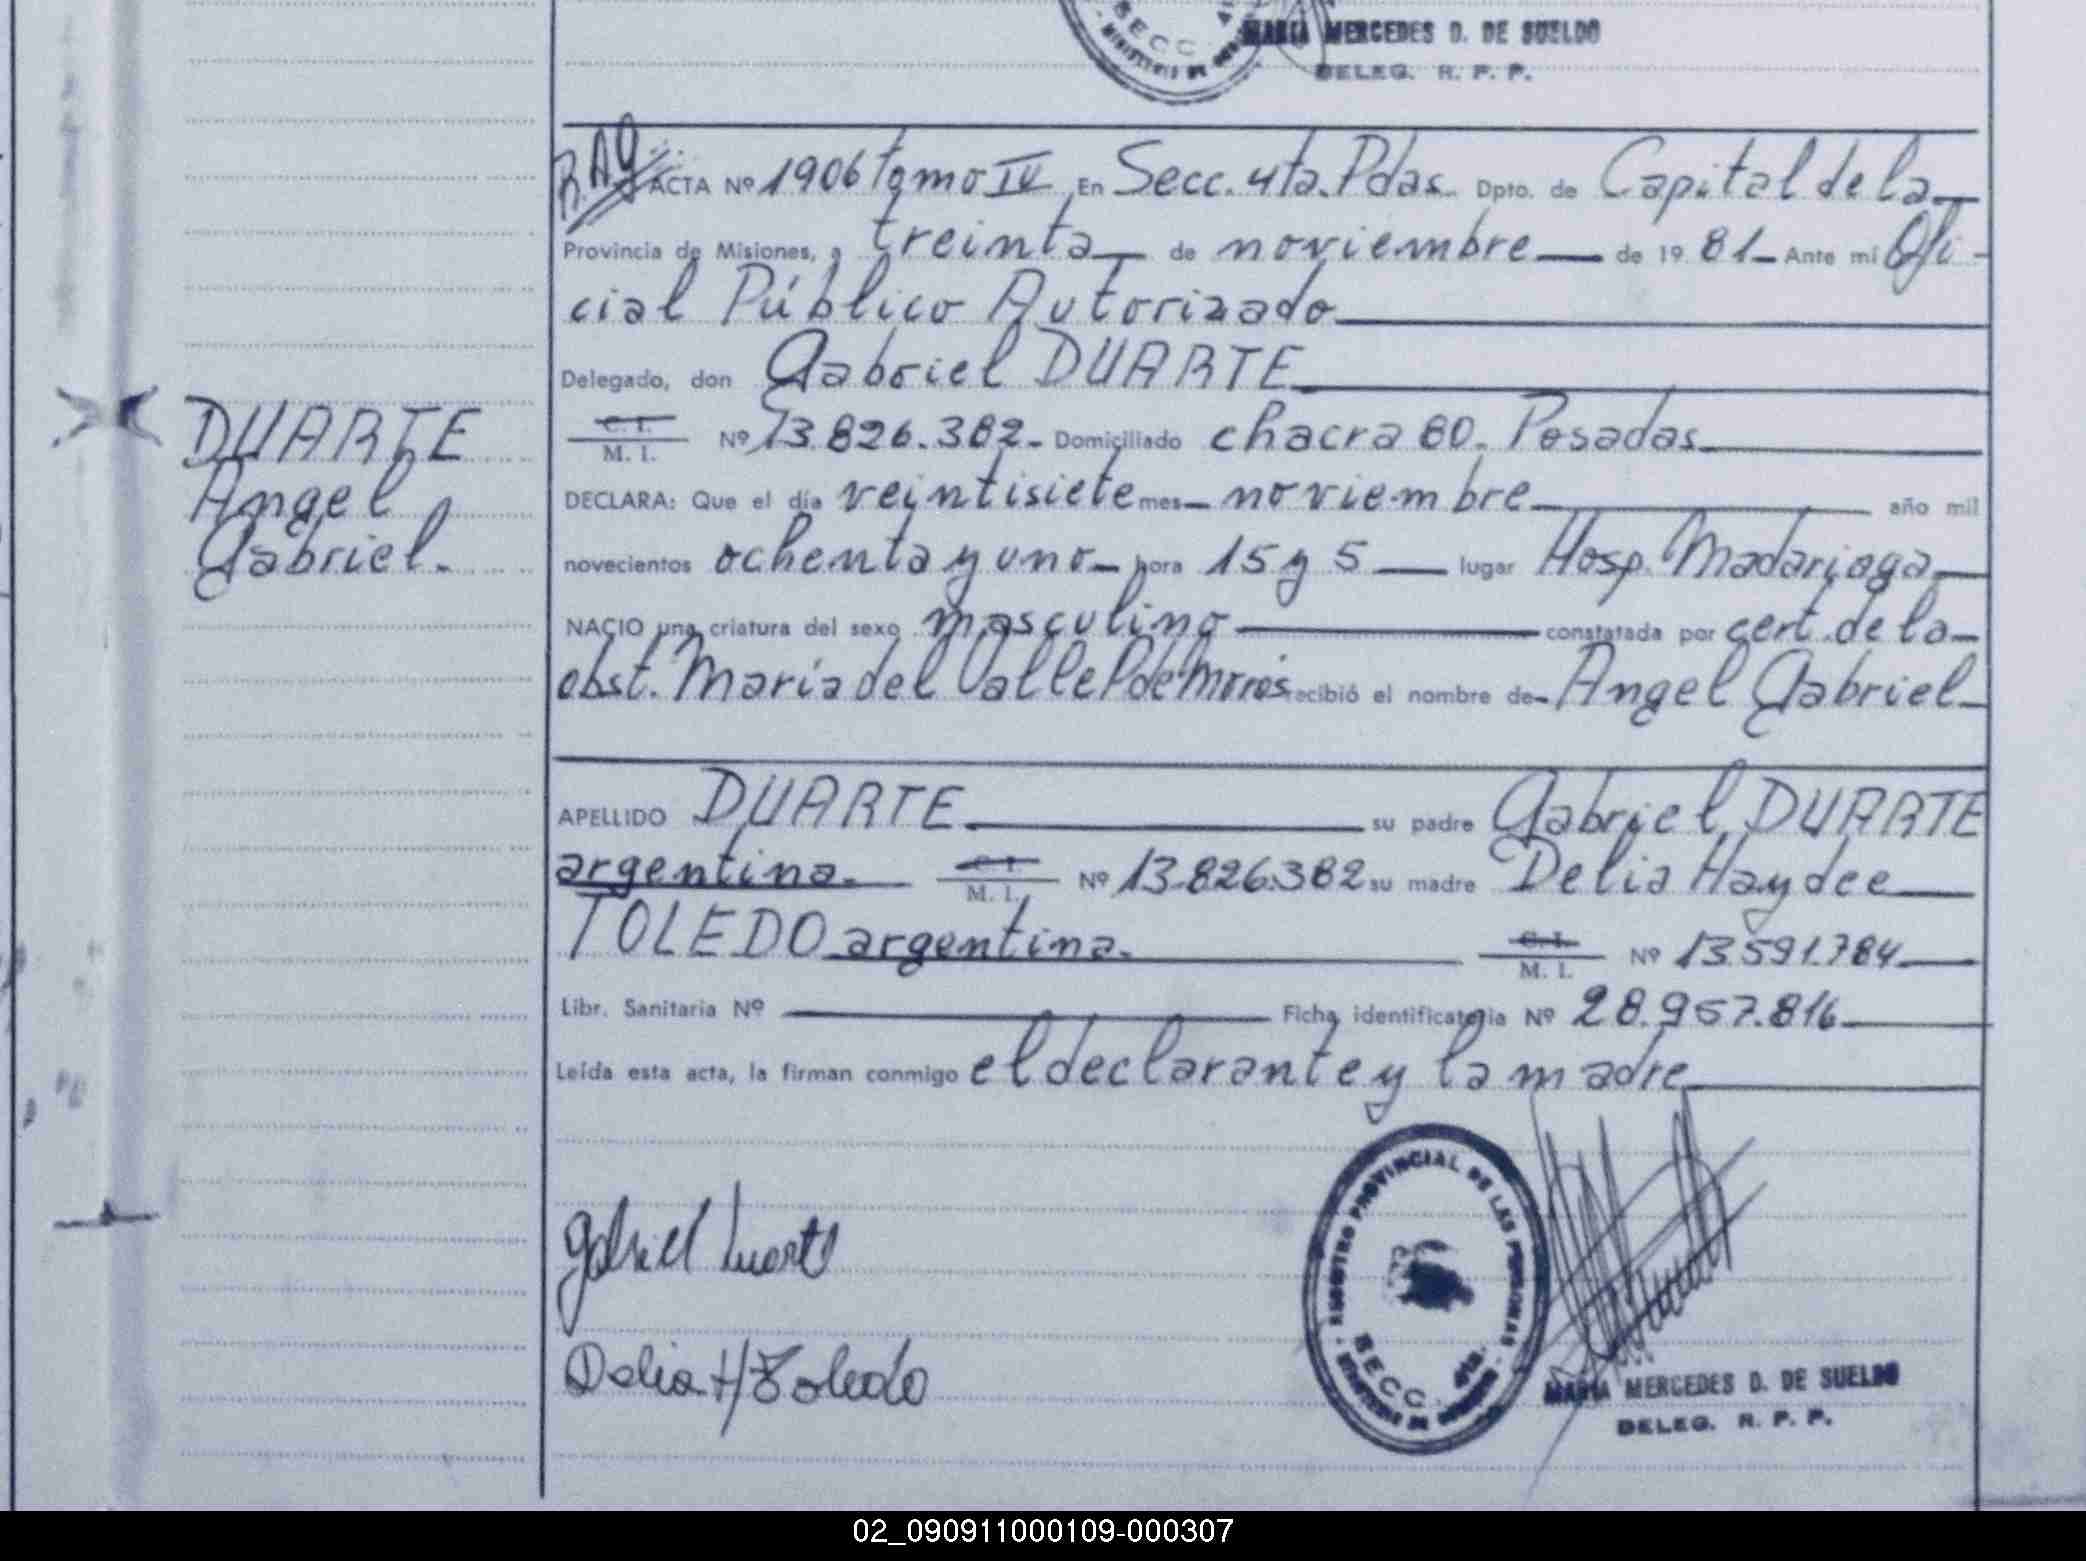 SECC. 4ta.
MARIA MERCEDES D. DE SUELDO
DELEG. R. P. P.
ACTA Nº 1906 tomo IV En Secc. 4ta. Pdas. Dpto. de Capital de la
Provincia de Misiones, a treinta de noviembre de 1981 Ante mi Ofi-
cial Público Autorizado
Delegado, don Gabriel DUARTE
C. I.
M. I. Nº 13.826.382. Domiciliado chacra 80. Posadas
DECLARA: Que el día veintisiete mes noviembre año mil
novecientos ochenta y uno hora 15 y 5 lugar Hosp. Madariaga
NACIO una criatura del sexo masculino constatada por cert. de la
obst. María del Valle P de recibió el nombre de Angel Gabriel
DUARTE
Angel
Gabriel.
APELLIDO DUARTE su padre Gabriel DUARTE
argentina. C. I. M. I. Nº 13.826.382 su madre Delia Haydee
TOLEDO argentina. C. I. M. I. Nº 13.591.784
Libr. Sanitaria Nº Ficha identificatoria Nº 28.957.816
Leída esta acta, la firman conmigo el declarante y la madre
Gabriel Duarte
Delia H Toledo
REGISTRO PROVINCIAL DE LAS PERSONAS
SECC. 4ta.
MARIA MERCEDES D. DE SUELDO
DELEG. R. P. P.
02_090911000109-000307